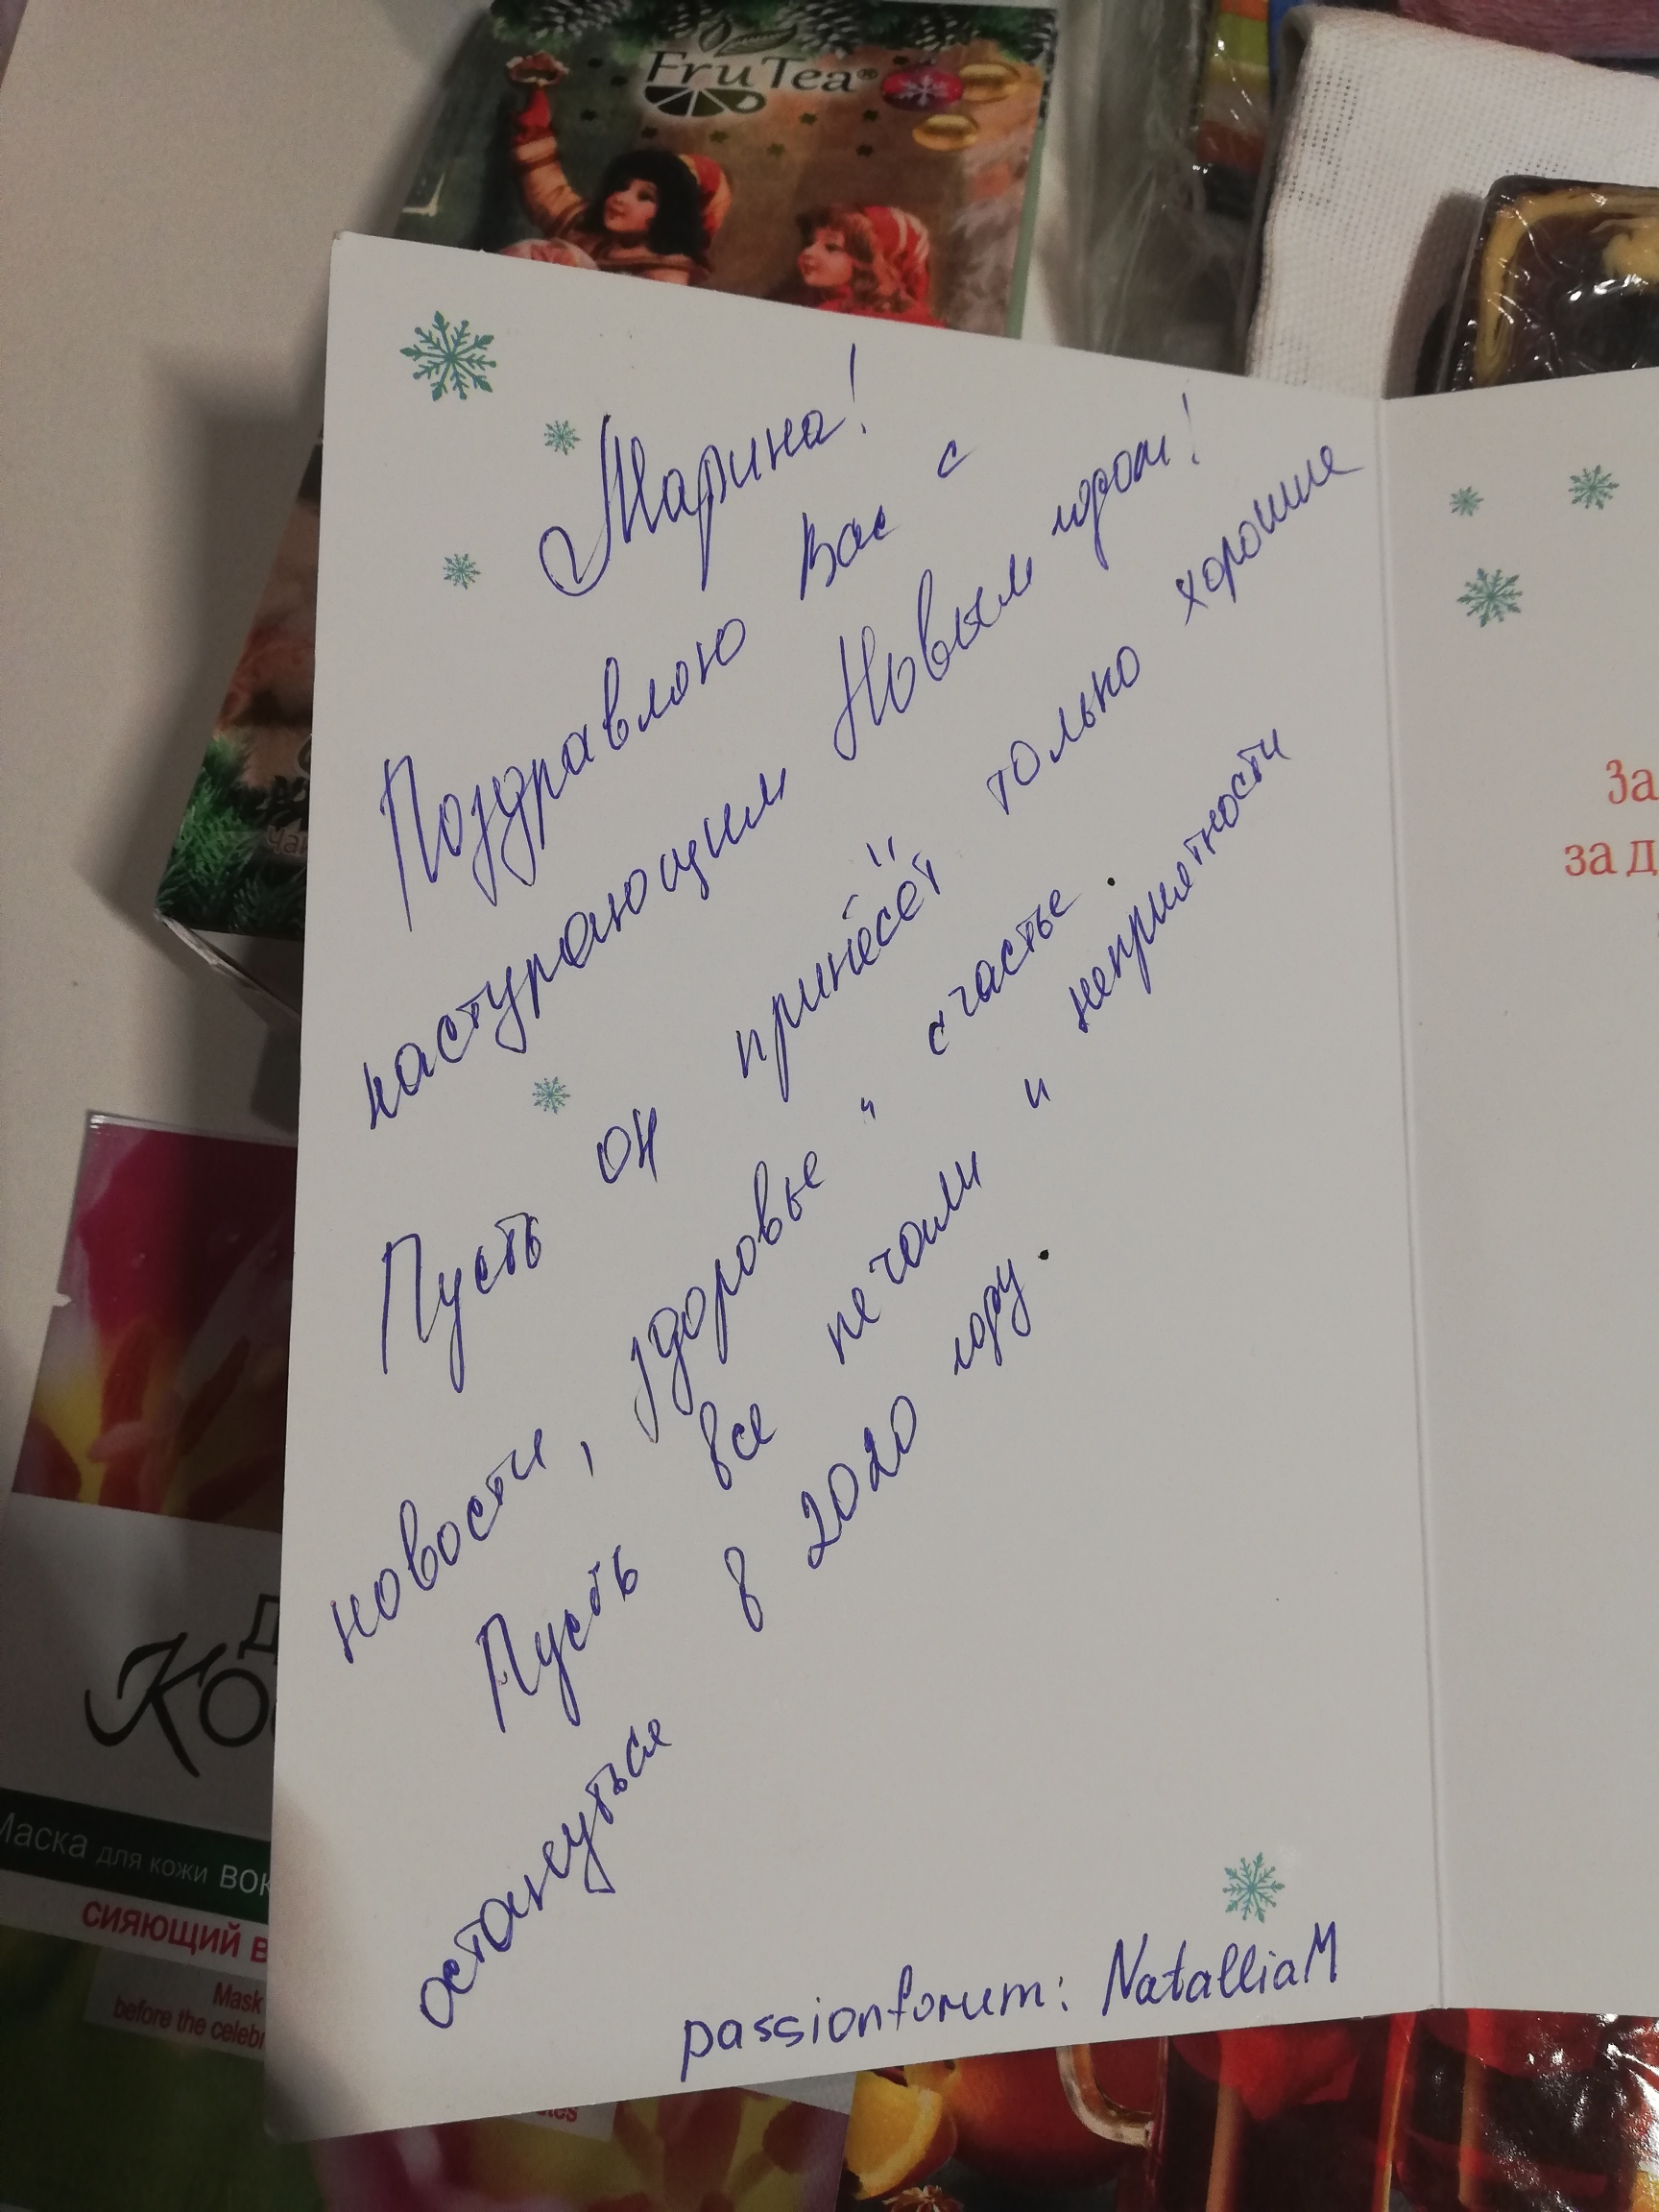 FruTea®
Марина!
Поздравляю Вас с
наступающим Новым годом!
Пусть он принесёт только хорошие
новости, здоровье и счастье.
Пусть все печали и неприятности
останутся в 2020 году.
passionforum: NatalliaM
За
за д
Маска для кожи вок
сияющий в
Mask
before the celebr